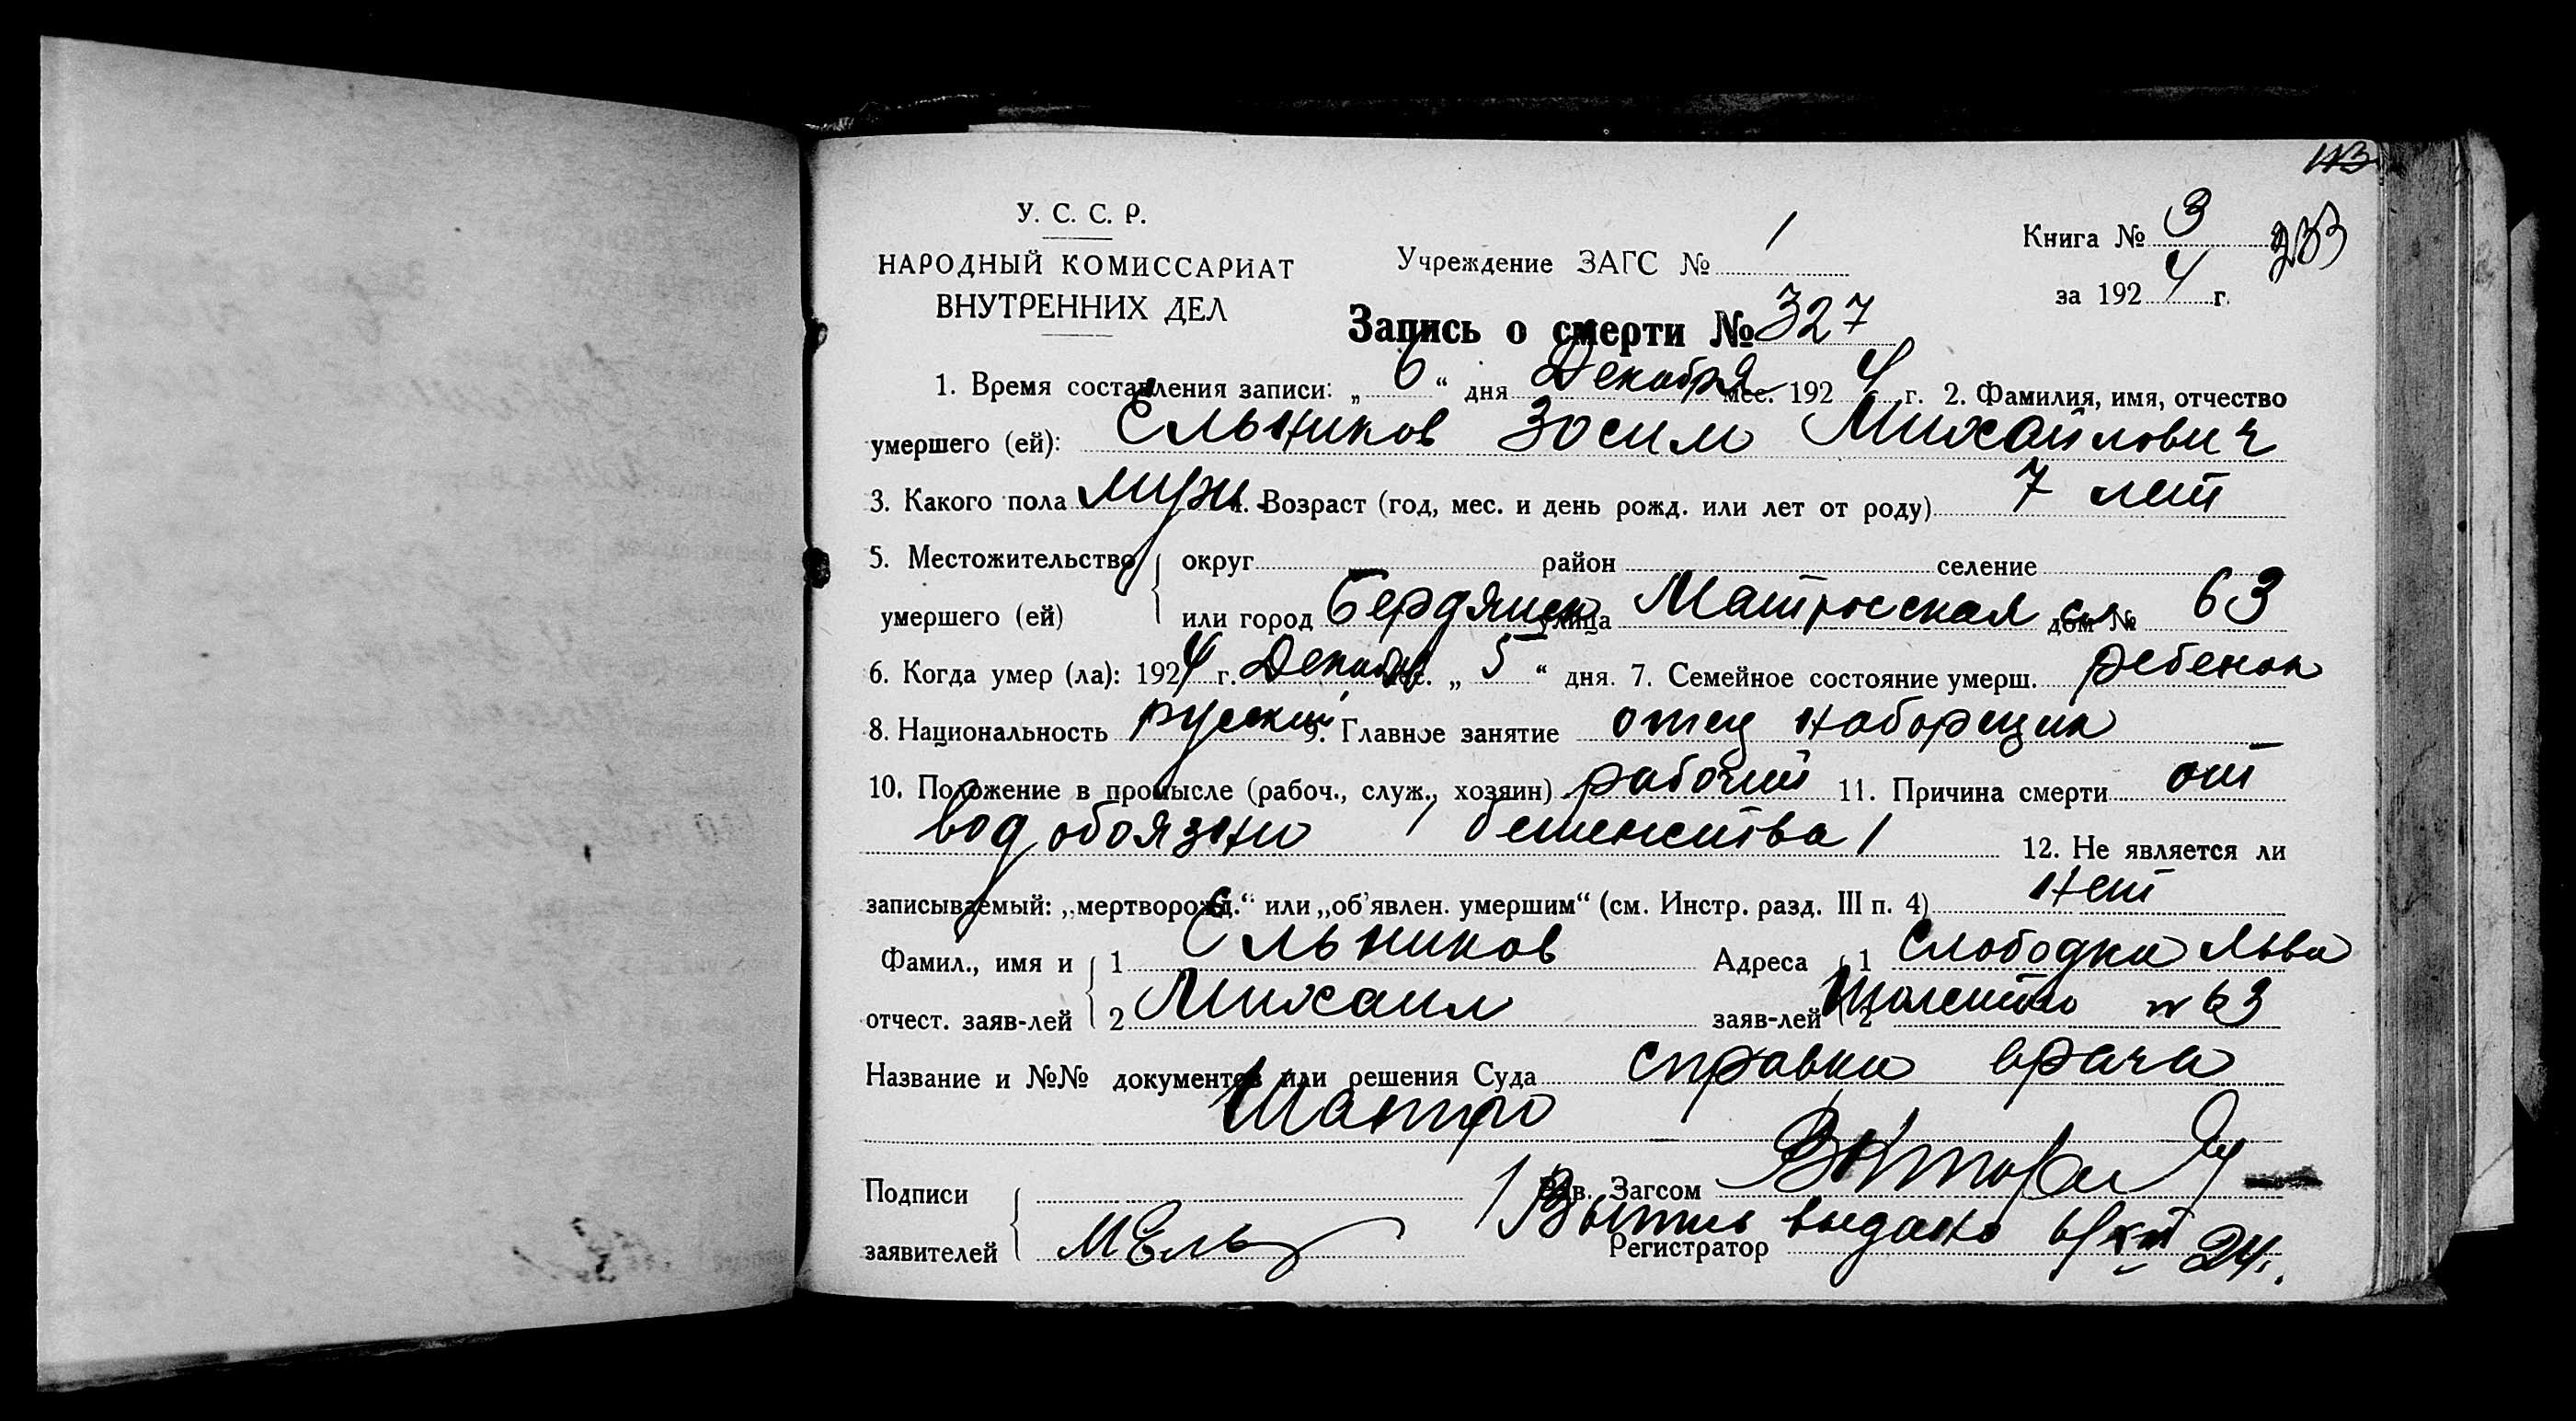 113
У. С. С. Р.
НАРОДНЫЙ КОМИССАРИАТ
ВНУТРЕННИХ ДЕЛ
Учреждение ЗАГС № 1
Книга № 3 233
за 1924 г.
Запись о смерти № 327
1. Время составления записи: „ 6 “ дня Декабря мес. 1924 г. 2. Фамилия, имя, отчество
умершего (ей): Ельников Зосим Михайлович
3. Какого пола муж. 4. Возраст (год, мес. и день рожд. или лет от роду) 7 лет
5. Местожительство округ район селение
умершего (ей) или город Бердянск улица Матросская сл дом № 63
6. Когда умер (ла): 1924 г. Декабря мес. „ 5 “ дня. 7. Семейное состояние умерш. ребенок
8. Национальность русский 9. Главное занятие отец наборщик
10. Положение в промысле (рабоч., служ., хозяин) рабочий 11. Причина смерти от
водобоязни / бешенства / 12. Не является ли
записываемый: „мертворожд.“ или „об'явлен. умершим“ (см. Инстр. разд. III п. 4) нет
Фамил., имя и 1 Ельников Адреса 1 Слободка Льва
отчест. заяв-лей 2 Михаил заяв-лей 2 Толстого № 63
Название и №№ документов или решения Суда справка врача
Подписи Зав. Загсом
заявителей МЕль Выпись выдана 6/XII 24.
Регистратор